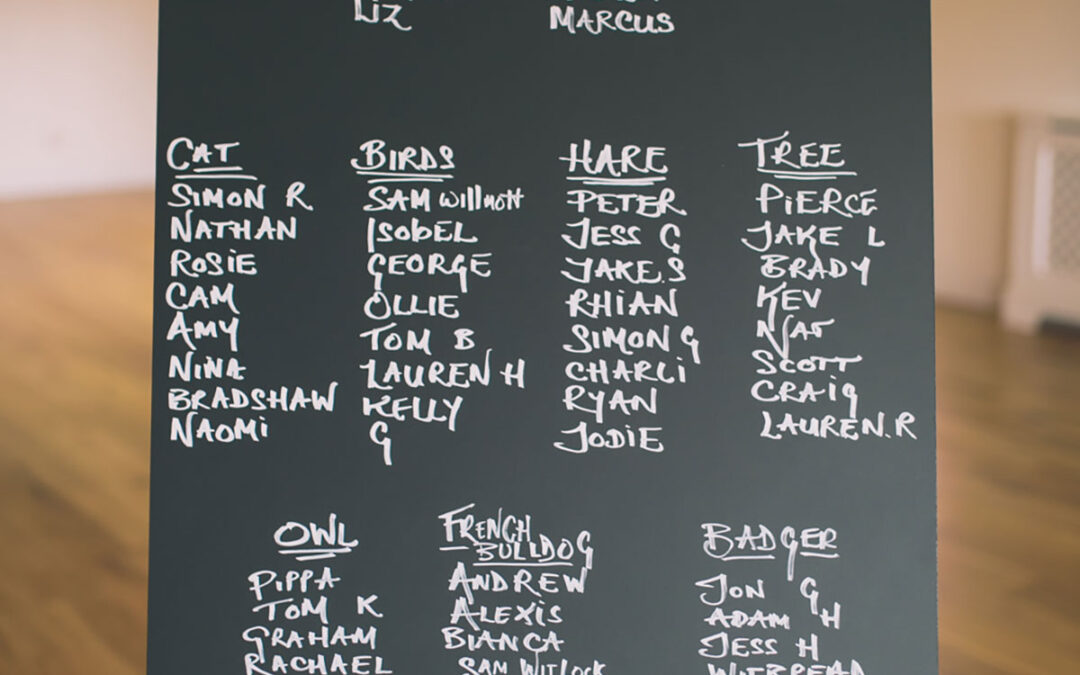 Liz
MARCUS
CAT
SIMON R
NATHAN
ROSIE
CAM
AMY
NINA
BRADSHAW
NAOMI
BIRDS
SAM Willmott
ISOBEL
GEORGE
OLLIE
TOM B
LAUREN H
KELLY
G
HARE
PETER
JESS G
JAKE.S
RHIAN
SIMON G
CHARLI
RYAN
JODIE
TREE
PIERCE
JAKE L
BRADY
KEV
NAT
SCOTT
CRAIG
LAUREN.R
OWL
PIPPA
TOM K
GRAHAM
RACHAEL
FRENCH
BULLDOG
ANDREW
ALEXIS
BIANCA
SAM WITLOCK
BADGER
JON G
ADAM H
JESS H
WITBREAD